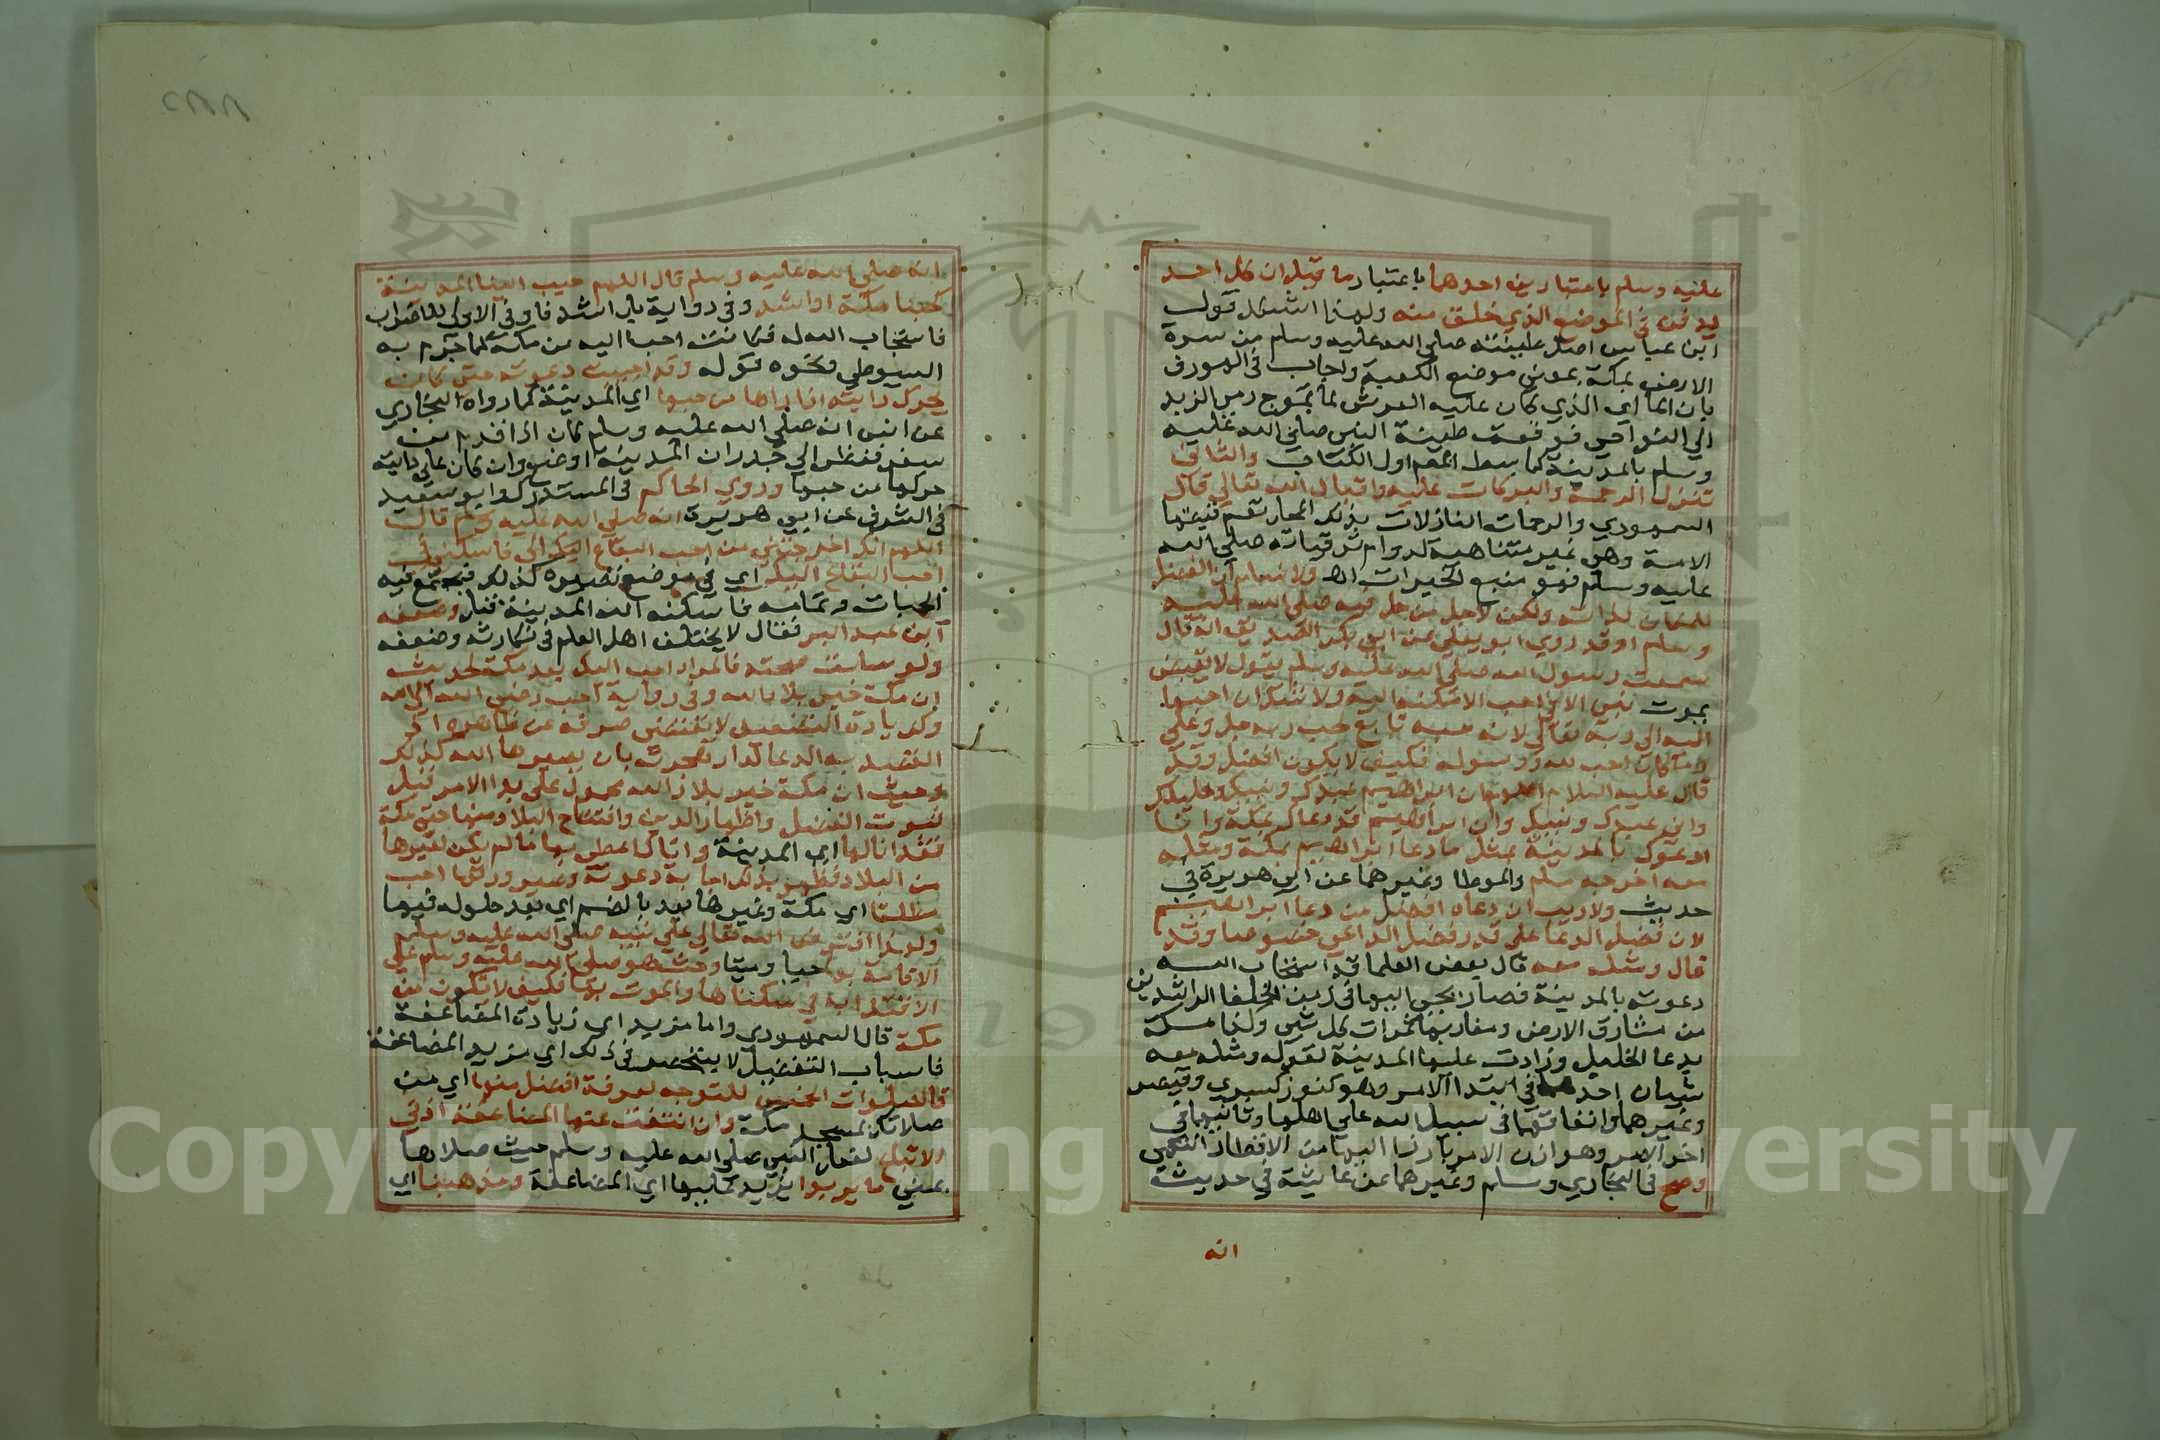 عليه وسلم باعتبارين احدهما باعتبار ما قيل ان كل احد
يدفن في الموضع الذي خلق منه ولهذا اشكل قول
ابن عباس اصل طينته صلى الله عليه وسلم من سرة
الارض بمكة يعني موضع الكعبة واجاب في العوارف
بان الماء اي الذي كان عليه العرش لما تموج رمى الزبد
الي النواحي فوقعت طينة النبي صلي الله عليه
وسلم بالمدينة كما بسطه المص اول الكتاب والثاني
تنزل الرحمة والبركات عليه واقبال الله تعالي قال
السمهودي والرحمات النازلات بذلك المحل تعم فيضها
الامة وهي غير متناهية لدوام ترقياته صلى الله
عليه وسلم فهو منبع الخيرات اه ولا نسلم ان الفضل
للمكان لذاته ولكن لاجل من حل فيه صلى الله عليه
وسلم او قد روي ابو يعلي عن ابي بكر الصديق انه قال
سمعت رسول الله صلى الله عليه وسلم يقول لا يقبض
بموت نبي الا في احب الامكنة اليه ولا شك ان احبها
اليه الي ربه تعالي لان حبه تابع لحب ربه جل وعلي
وما كان احب لله ورسوله فكيف لا يكون افضل وقد
قال عليه السلام اللهم ان ابراهيم عبدك ونبيك وخليلك
واني عبدك ونبيك وان ابراهيم قد دعاك بمكة وانا
ادعوك بالمدينة بمثل ما دعا ابراهيم بمكة ومثله
معه اخرجه مسلم والموطا وغيرهما عن ابي هريرة في
حديث ولا ريب ان دعاه افضل من دعا ابراهيم
لان فضل الدعا على قدر فضل الداعي خصوصا وقد
قال ومثله معه قال بعض العلما قد استجاب الله
دعوته بالمدينة فصار يجبي اليها في زمن الخلفا الراشدين
من مشارق الارض ومغاربها ثمرات كل شي وكذا مكة
بدعا الخليل وزادت عليها المدينة لقوله ومثله معه
شيان احدهما في ابتدا الامر وهو كنوز كسري وقيصر
وغيرهما وانفاقهما في سبيل الله علي اهلها وثانيهما في
اخر الامر وهو ان الامر يارز اليها من الاقطار انتهى
وصح في البخاري وسلم وغيرهما عن عايشة في حديث
انه
انه صلي الله عليه وسلم قال اللهم حبب الينا المدينة
كحبنا مكة او اشد وفي رواية بل اشد فاو في الاولي للاضراب
فاستجاب الله له فكانت احب اليه من مكة كما جزم به
السيوطي ونحوه قوله وقد اجيبت دعوته حتى كان
يحرك دابته اذا راها من حبها اي المدينة كما رواه البخاري
عن انس انه صلى الله عليه وسلم كان اذا قدم من
سفر فنظر الي جدران المدينة اوضع وان كان على دابة
حركها من حبها وروي الحاكم في المستدرك وابو سعيد
في الشرف عن ابي هريرة انه صلى الله عليه وسلم قال
اللهم انك اخرجتني من احب البقاع الي فاسكني في
احب البقاع اليك اي في موضع تصيره كذلك فيجتمع فيه
الحبات وتمامه فاسكنه الله المدينة قيل وضعفه
ابن عبد البر فقال لا يختلف اهل العلم في نكارته وضعفه
ولو سلمت صحته فالمراد احب اليك بعد مكة لحديث
ان مكة خير بلاد الله وفي رواية احب ارض الله الي الله
ولزيادة التضعيف لا يقتضي صرفه عن ظاهره اذ
القصد به الدعا لدار هجرته بان يصيرها الله كذلك
وحيث ان مكة خير بلاد الله محمول علي بدا الامر قبل
ثبوت الفضل واظهار الدين وافتتاح البلاد منها حتى مكة
فقد انالها اي المدينة وانال بها ما لم يكن لغيرها
من البلاد فظهر بذلك اجابة دعوته وصيرورتها احب
مطلقا اي مكة وغيرها بعد بالضم اي بعد حلوله فيها
ولهذا افترض الله تعالي علي نبيه صلى الله عليه وسلم
الاقامة بها حيا وميتا وحث هو صلى الله عليه وسلم علي
الاقتدا به في سكناها والموت بها فكيف لا تكون من
مكة قال السمهودي واما مزيد اي زيادة المضاعفة
فاسباب التفضيل لا ينحصر في ذلك اي مزيد المضاعفة
فالصلوات الخمس للتوجه لعرفة افضل منها اي من
صلاتك بمسجد مكة وان انتفت عنها المضاعفة اذ في
الاتباع لفعل النبي صلى الله عليه وسلم حيث صلاها
بمني ما يربوا يزيد علي المضاعفة ومذهبنا اي